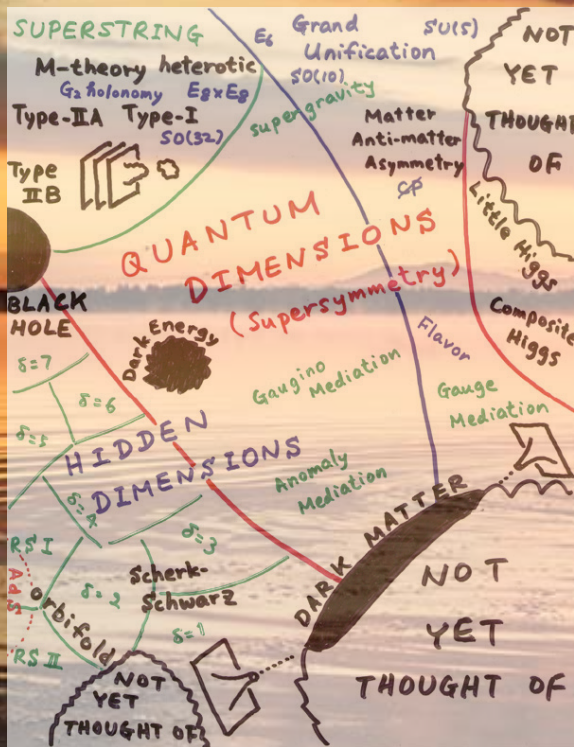 SUPERSTRING
M-theory heterotic
G₂ holonomy E8×E8
Type-IIA Type-I
SO(32)
Type
IIB
E6
Grand
Unification
SU(5)
SO(10)
supergravity
Matter
Anti-matter
Asymmetry
CP
NOT
YET
THOUGHT
OF
Little Higgs
Composite
Higgs
QUANTUM
DIMENSIONS
(Supersymmetry)
BLACK
HOLE
Dark Energy
Flavor
Gaugino
Mediation
Gauge
Mediation
Anomaly
Mediation
HIDDEN
DIMENSIONS
δ=7
δ=6
δ=5
δ=4
δ=3
δ=2
δ=1
RS I
AdS
RS II
orbifold
Scherk-
Schwarz
DARK MATTER
NOT
YET
THOUGHT OF
NOT
YET
THOUGHT OF